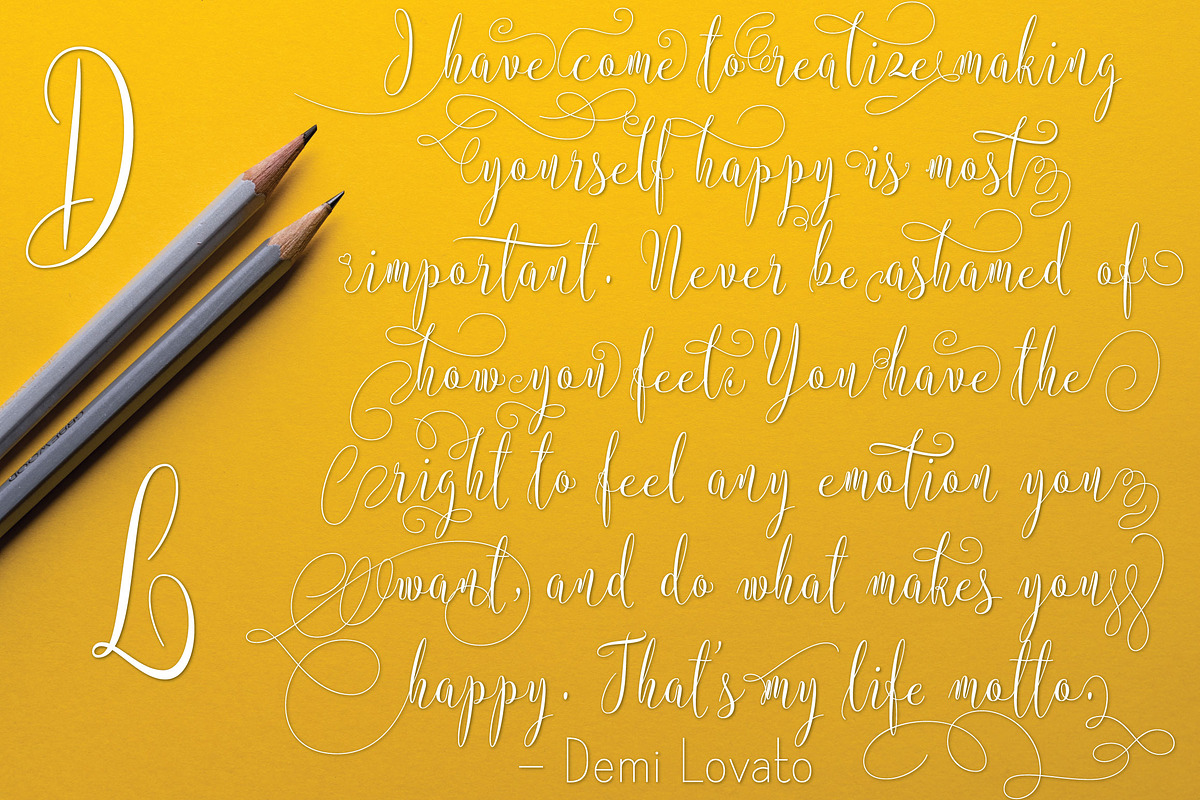 D
L
I have come to realize making
yourself happy is most
important. Never be ashamed of
how you feel. You have the
right to feel any emotion you
want, and do what makes you
happy. That's my life motto.
– Demi Lovato